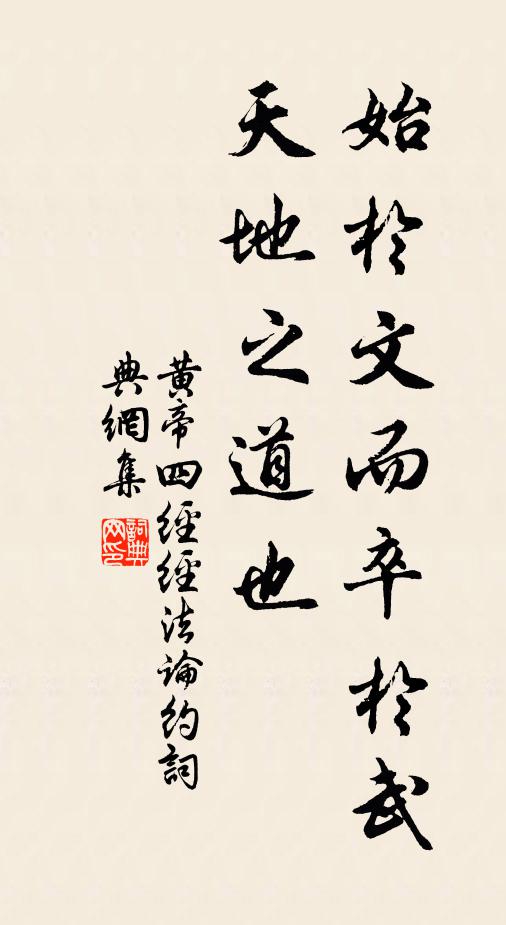 始於文而卒於武
天地之道也
黄帝四經經法論約詞
典網集
詞典
网印